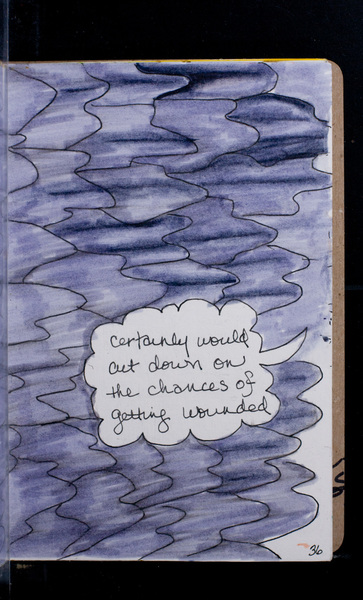 certainly would
cut down on
the chances of
getting wounded
36